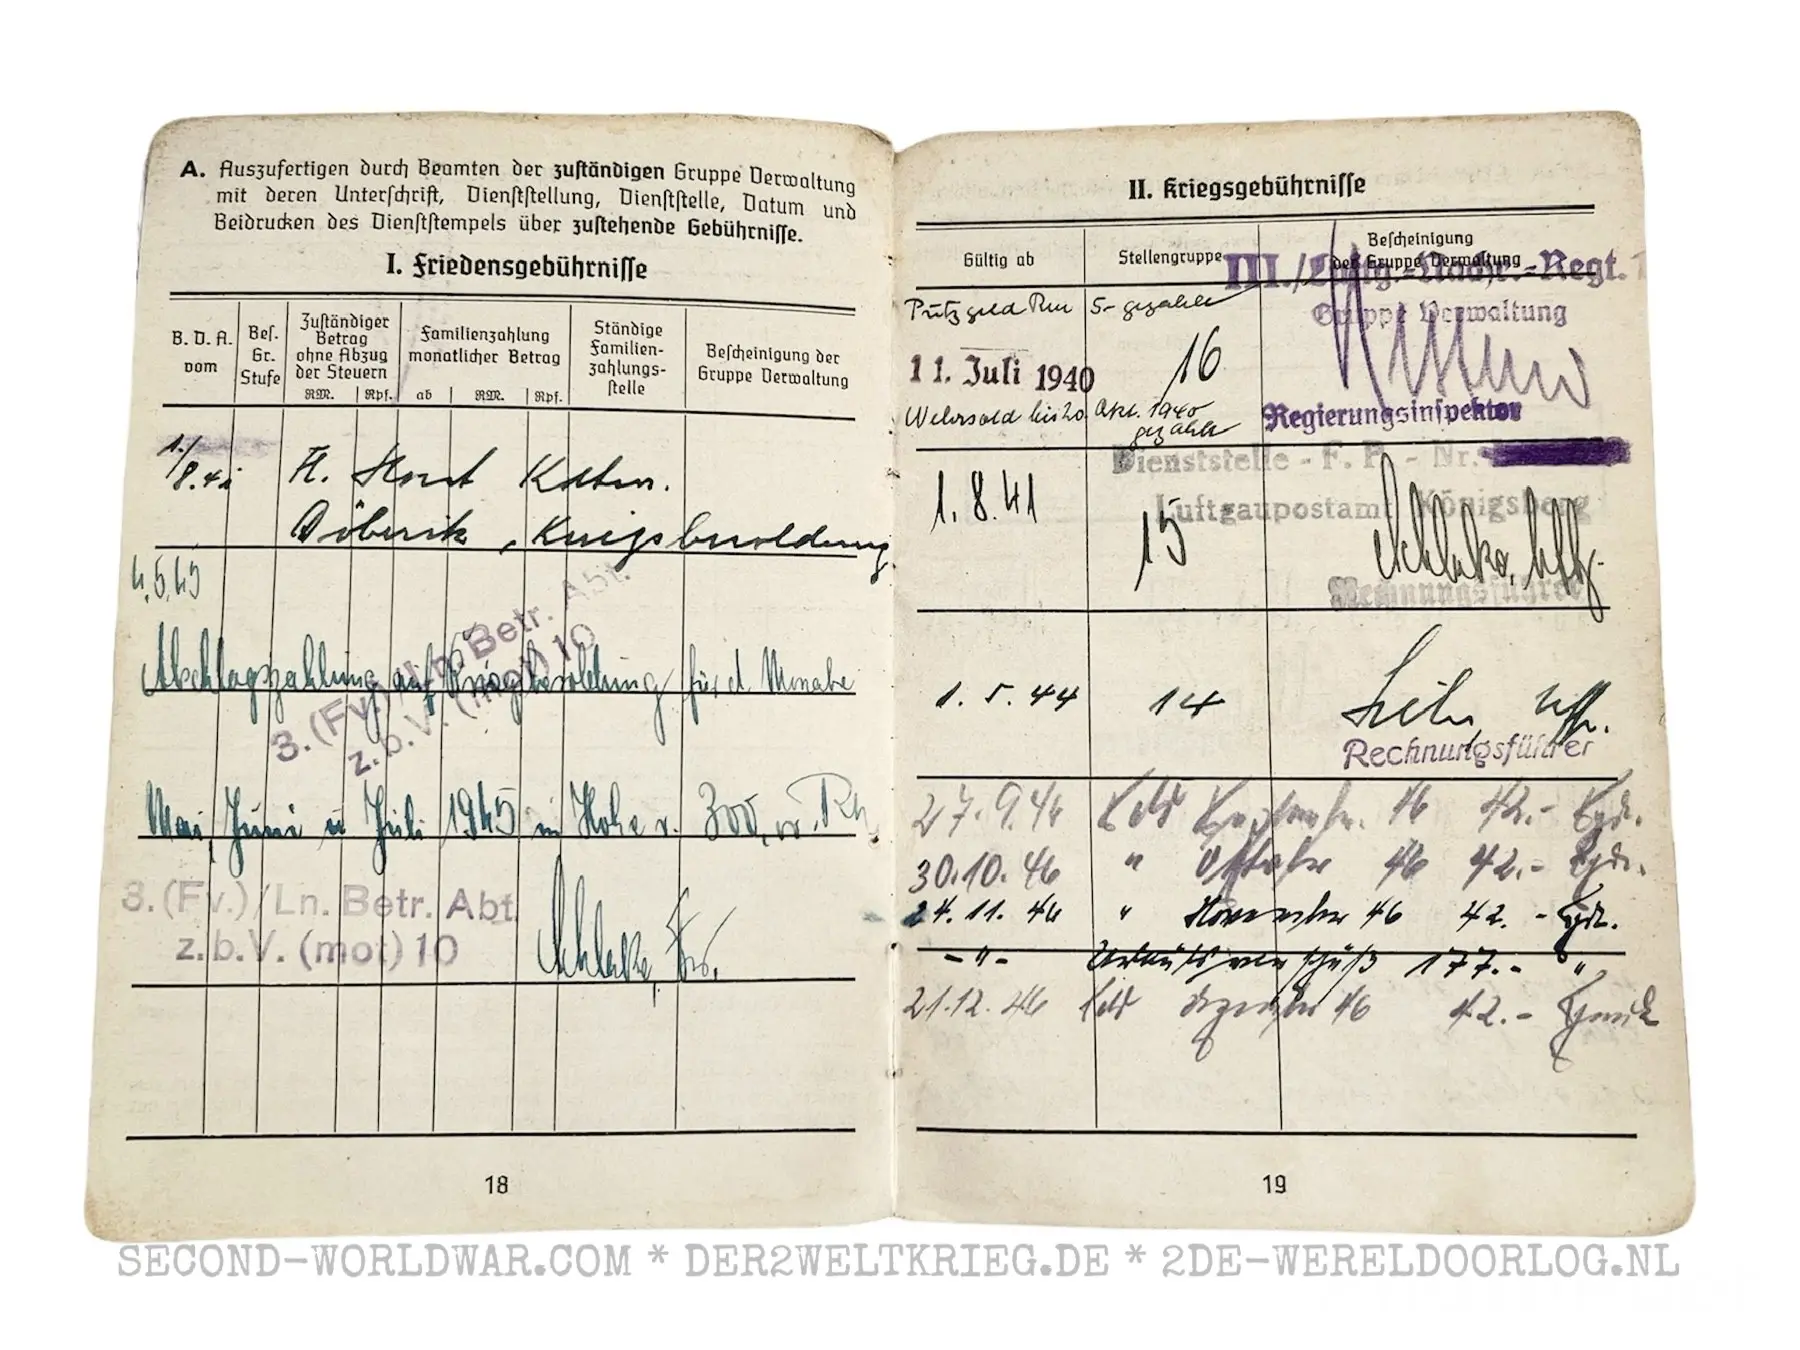 A. Auszufertigen durch Beamten der zuständigen Gruppe Verwaltung
mit deren Unterschrift, Dienststellung, Dienststelle, Datum und
Beidrucken des Dienststempels über zustehende Gebührnisse.
I. Friedensgebührnisse
B. D. A. vom
Bes. Gr. Stufe
Zuständiger Betrag ohne Abzug der Steuern
RM. Rpf.
Familienzahlung monatlicher Betrag
ab RM. Rpf.
Ständige Familien- zahlungs- stelle
Bescheinigung der Gruppe Verwaltung
1./8.41
Döberitz, Kriegsbesoldung
4.5.45
3. (Fv.)/Ln. Betr. Abt.
z.b.V. (mot) 10
Abschlagszahlung auf Kriegsbesoldung für d. Monate
Mai, Juni u Juli 1945 in Höhe v. 300,
3. (Fv.)/Ln. Betr. Abt.
z.b.V. (mot) 10
18
II. Kriegsgebührnisse
Gültig ab
Stellengruppe
Bescheinigung der Gruppe Verwaltung
III./Luftg.-Nachr.-Regt.
Gruppe Verwaltung
Putzgeld 5.- gezahlt
11. Juli 1940
16
Wehrsold bis 20. Okt. 1940 gezahlt
Regierungsinspektor
Dienststelle - F. P. - Nr.
Luftgaupostamt Königsberg
1.8.41
15
Rechnungsführer
1.5.44
14
Uffz.
Rechnungsführer
27.9.46 Geld September 46 42.-
30.10.46 " Oktober 46 42.-
24.11.46 " November 46 42.-
-"- Urlaubsvorschuß 177.- "
21.12.46 Geld Dezember 46 42.-
19
SECOND-WORLDWAR.COM * DER2WELTKRIEG.DE * 2DE-WERELDOORLOG.NL